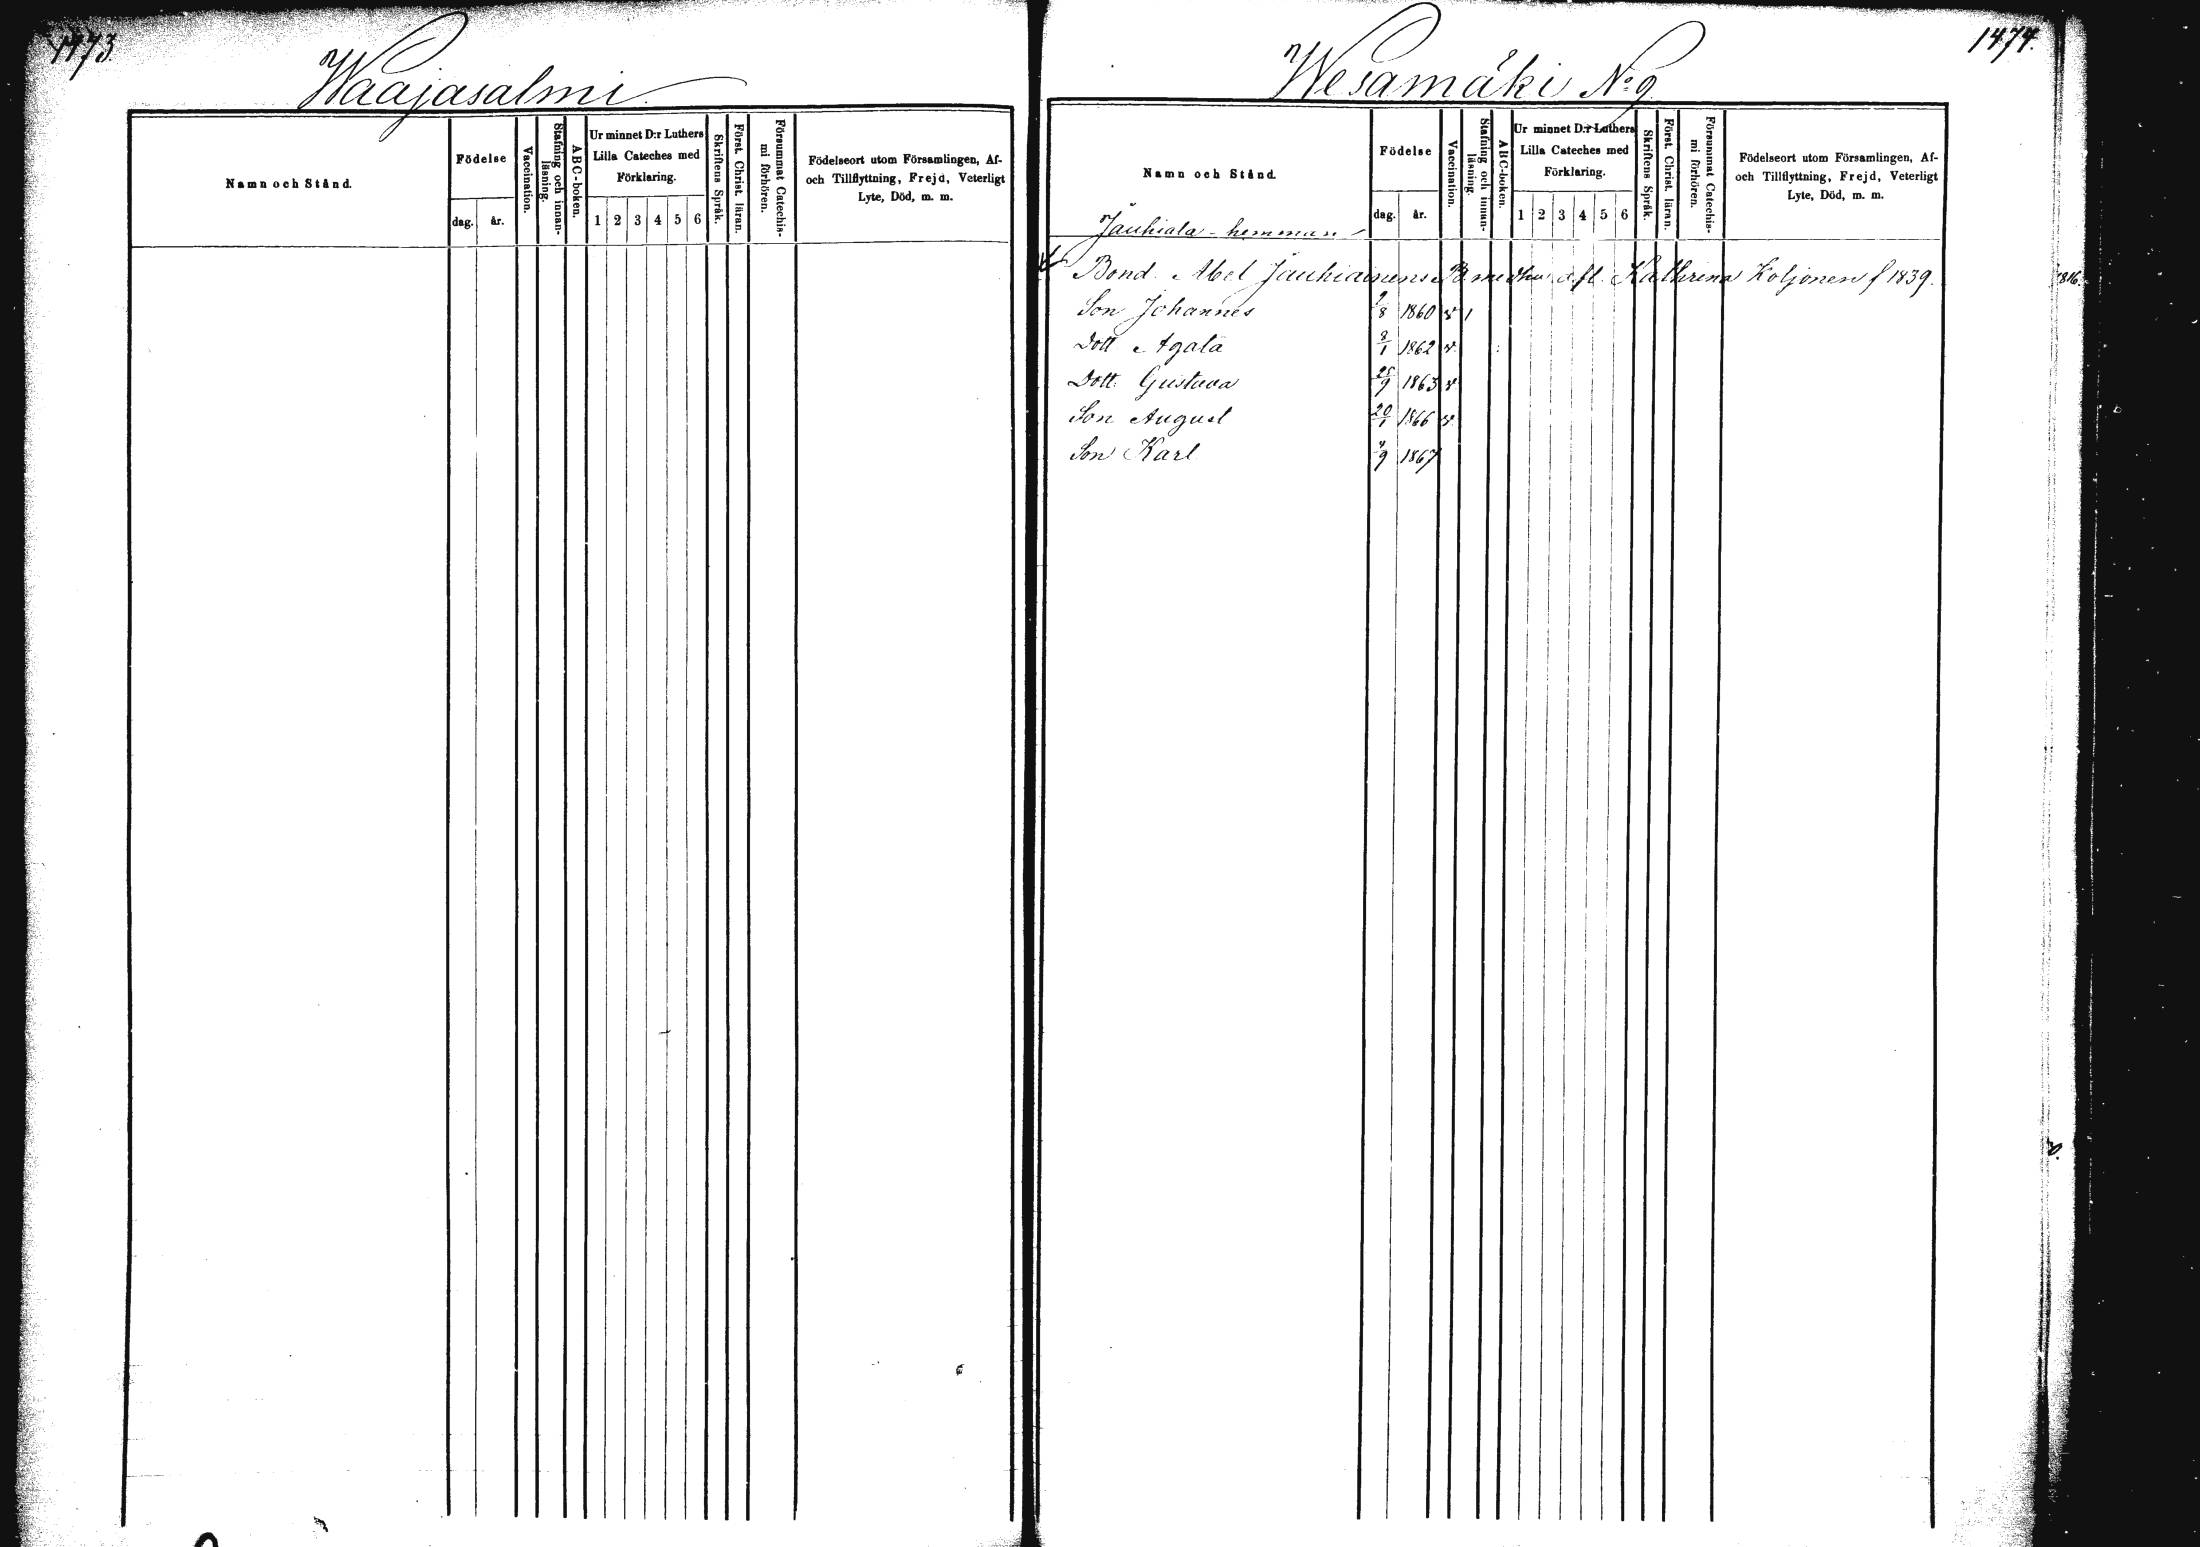 1473.
Waajasalmi
Namn och Stånd.
Födelse
dag. år.
Vaccination.
Stafning och innan-
läsning.
ABC-boken.
Ur minnet D:r Luthers
Lilla Cateches med
Förklaring.
1 2 3 4 5 6
Skriftens Språk.
Först. Christ. läran.
Försummat Catechis-
mi förhören.
Födelseort utom Församlingen, Af-
och Tillflyttning, Frejd, Veterligt
Lyte, Död, m. m.
1474.
Wesamäki N:o 9
Namn och Stånd.
Födelse
dag. år.
Vaccination.
Stafning och innan-
läsning.
ABC-boken.
Ur minnet D:r Luthers
Lilla Cateches med
Förklaring.
1 2 3 4 5 6
Skriftens Språk.
Först. Christ. läran.
Försummat Catechis-
mi förhören.
Födelseort utom Församlingen, Af-
och Tillflyttning, Frejd, Veterligt
Lyte, Död, m. m.
Jauhiala - hemman
Bond. Abel Jauhiainens B. med hu. afl. Kathrina Koljonen f 1839.
Son Johannes 9/8 1860 v 1
Dott Agata 8/1 1862 v
Dott. Gustava 25/9 1863 v
Son August 20/1 1866 v
Son Karl 4/9 1867
1816.